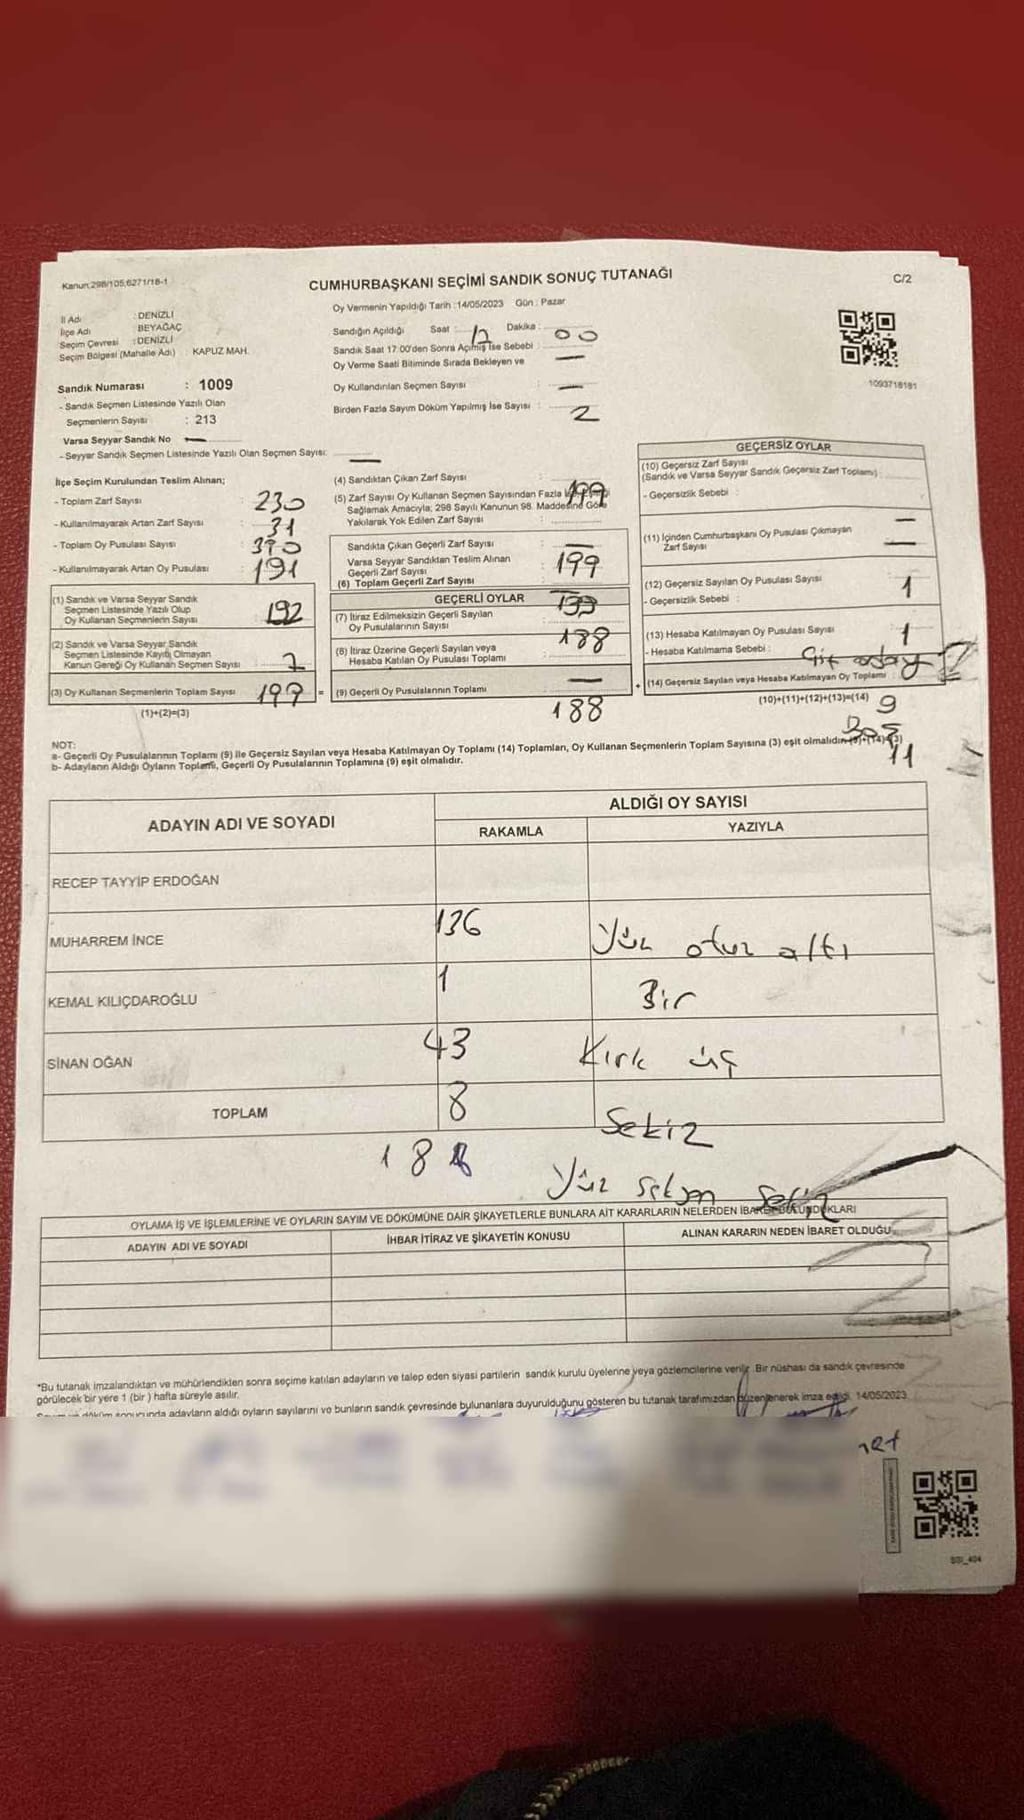 Kanun:298/105;6271/18-1
CUMHURBAŞKANI SEÇİMİ SANDIK SONUÇ TUTANAĞI
C/2
İl Adı : DENİZLİ
İlçe Adı : BEYAĞAÇ
Seçim Çevresi : DENİZLİ
Seçim Bölgesi (Mahalle Adı) : KAPUZ MAH.
Sandık Numarası : 1009
- Sandık Seçmen Listesinde Yazılı Olan
Seçmenlerin Sayısı : 213
Varsa Seyyar Sandık No —
- Seyyar Sandık Seçmen Listesinde Yazılı Olan Seçmen Sayısı: —
Oy Vermenin Yapıldığı Tarih :14/05/2023 Gün : Pazar
Sandığın Açıldığı Saat : 17 Dakika : 00
Sandık Saat 17:00'den Sonra Açılmış İse Sebebi :
Oy Verme Saati Bitiminde Sırada Bekleyen ve —
Oy Kullandırılan Seçmen Sayısı : —
Birden Fazla Sayım Döküm Yapılmış İse Sayısı : 2
1093718181
İlçe Seçim Kurulundan Teslim Alınan;
- Toplam Zarf Sayısı : 230
- Kullanılmayarak Artan Zarf Sayısı : 31
- Toplam Oy Pusulası Sayısı : 390
- Kullanılmayarak Artan Oy Pusulası : 191
(1) Sandık ve Varsa Seyyar Sandık
Seçmen Listesinde Yazılı Olup
Oy Kullanan Seçmenlerin Sayısı : 192
(2) Sandık ve Varsa Seyyar Sandık
Seçmen Listesinde Kayıtlı Olmayan
Kanun Gereği Oy Kullanan Seçmen Sayısı : 7
(3) Oy Kullanan Seçmenlerin Toplam Sayısı : 199 =
(1)+(2)=(3)
(4) Sandıktan Çıkan Zarf Sayısı : 199
(5) Zarf Sayısı Oy Kullanan Seçmen Sayısından Fazla
Sağlamak Amacıyla; 298 Sayılı Kanunun 98. Maddesine Göre
Yakılarak Yok Edilen Zarf Sayısı :
Sandıkta Çıkan Geçerli Zarf Sayısı : —
Varsa Seyyar Sandıktan Teslim Alınan
Geçerli Zarf Sayısı : 199
(6) Toplam Geçerli Zarf Sayısı
GEÇERLİ OYLAR
(7) İtiraz Edilmeksizin Geçerli Sayılan
Oy Pusulalarının Sayısı : 188
(8) İtiraz Üzerine Geçerli Sayılan veya
Hesaba Katılan Oy Pusulası Toplamı
(9) Geçerli Oy Pusulalarının Toplamı : — +
188
GEÇERSİZ OYLAR
(10) Geçersiz Zarf Sayısı
(Sandık ve Varsa Seyyar Sandık Geçersiz Zarf Toplamı)
- Geçersizlik Sebebi :
—
(11) İçinden Cumhurbaşkanı Oy Pusulası Çıkmayan
Zarf Sayısı —
(12) Geçersiz Sayılan Oy Pusulası Sayısı : 1
- Geçersizlik Sebebi :
(13) Hesaba Katılmayan Oy Pusulası Sayısı : 1
- Hesaba Katılmama Sebebi :
(14) Geçersiz Sayılan veya Hesaba Katılmayan Oy Toplamı :
(10)+(11)+(12)+(13)=(14) 9
11
NOT:
a- Geçerli Oy Pusulalarının Toplamı (9) ile Geçersiz Sayılan veya Hesaba Katılmayan Oy Toplamı (14) Toplamları, Oy Kullanan Seçmenlerin Toplam Sayısına (3) eşit olmalıdır.
b- Adayların Aldığı Oyların Toplamı, Geçerli Oy Pusulalarının Toplamına (9) eşit olmalıdır.
ADAYIN ADI VE SOYADI
ALDIĞI OY SAYISI
RAKAMLA YAZIYLA
RECEP TAYYİP ERDOĞAN
136 Yüz otuz altı
MUHARREM İNCE
1 Bir
KEMAL KILIÇDAROĞLU
43 Kırk üç
SİNAN OĞAN
8 Sekiz
TOPLAM
188 Yüz seksen sekiz
OYLAMA İŞ VE İŞLEMLERİNE VE OYLARIN SAYIM VE DÖKÜMÜNE DAİR ŞİKAYETLERLE BUNLARA AİT KARARLARIN NELERDEN İBARET BULUNDUKLARI
ADAYIN ADI VE SOYADI İHBAR İTİRAZ VE ŞİKAYETİN KONUSU ALINAN KARARIN NEDEN İBARET OLDUĞU
*Bu tutanak imzalandıktan ve mühürlendikten sonra seçime katılan adayların ve talep eden siyasi partilerin sandık kurulu üyelerine veya gözlemcilerine verilir. Bir nüshası da sandık çevresinde
görülecek bir yere 1 (bir ) hafta süreyle asılır.
Sayım ve döküm sonucunda adayların aldığı oyların sayılarını ve bunların sandık çevresinde bulunanlara duyurulduğunu gösteren bu tutanak tarafımızdan düzenlenerek imza edildi. 14/05/2023
SSI_404